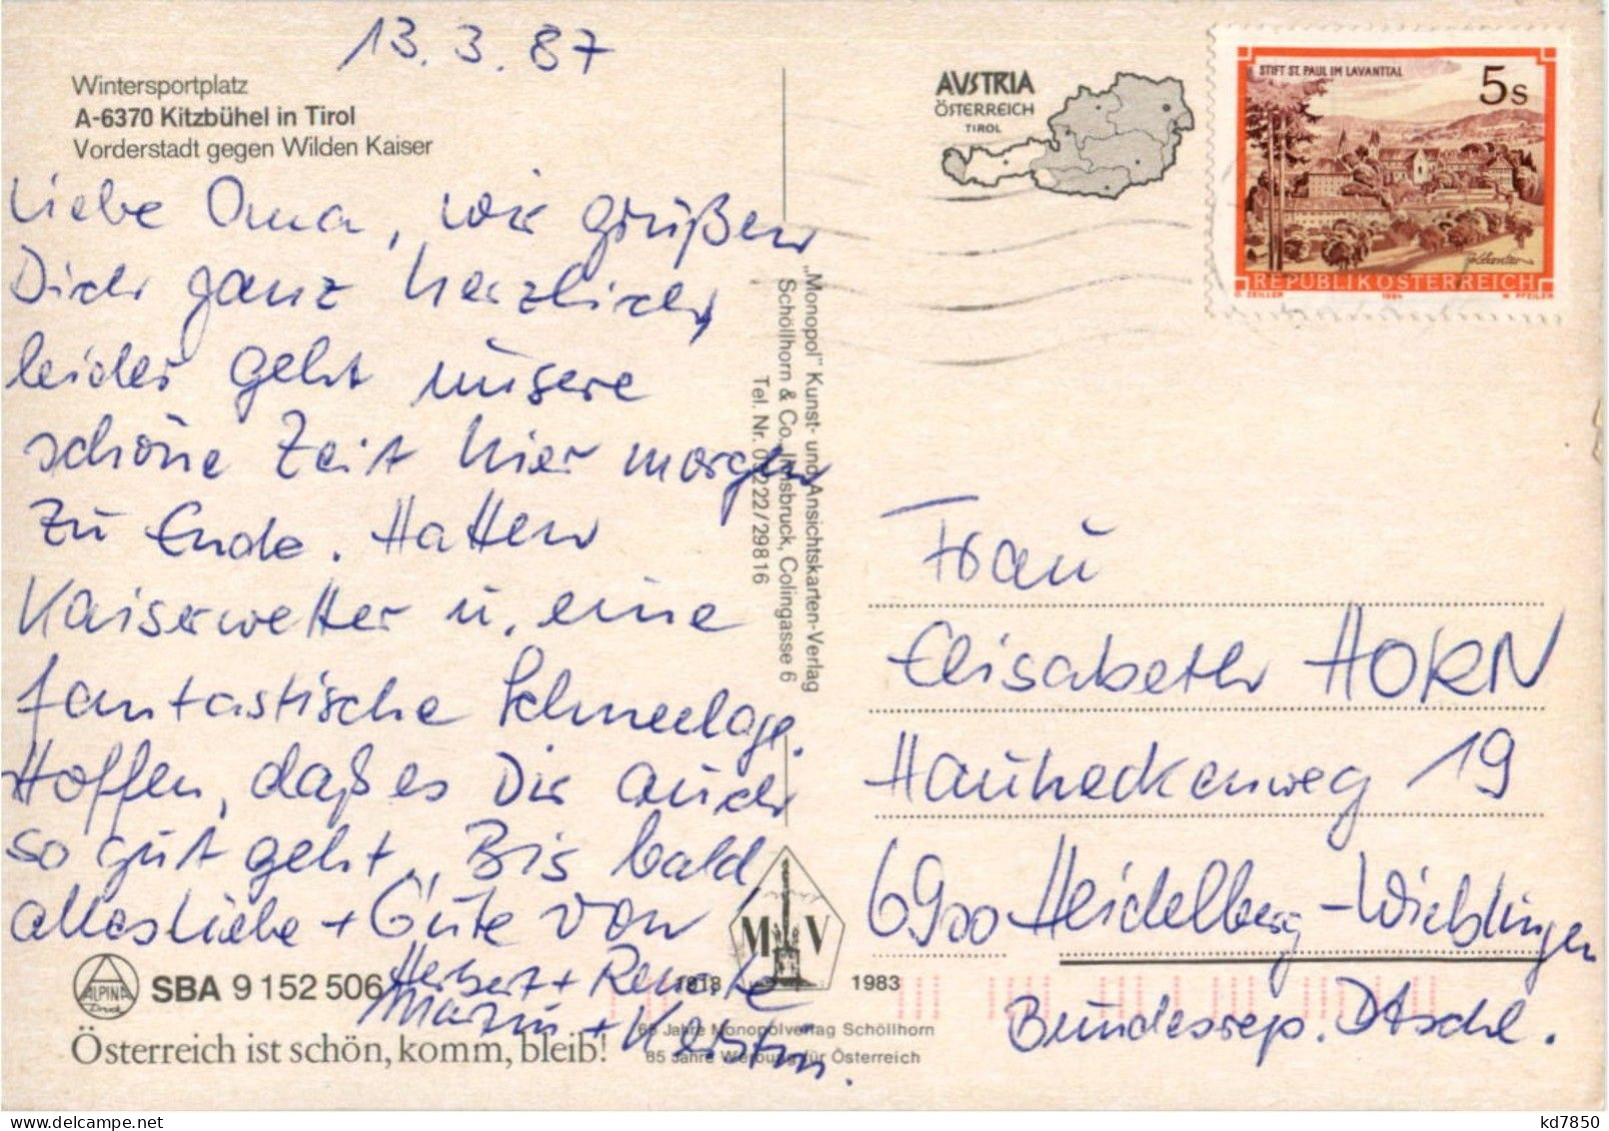 13.3.87
Wintersportplatz
A-6370 Kitzbühel in Tirol
Vorderstadt gegen Wilden Kaiser
Liebe Oma, wir grüßen
Dich ganz herzlich,
leider geht unsere
schöne Zeit hier morgen
zu Ende. Hatten
Kaiserwetter u. eine
fantastische Schneelage.
Hoffen, daß es Dir auch
so gut geht. Bis bald
alles Liebe + Gute von
Herbert + Renate
Martin + Kerstin.
ALPINA
Druck
SBA 9 152 506
Österreich ist schön, komm, bleib!
„Monopol" Kunst- und Ansichtskarten-Verlag
Schöllhorn & Co. Innsbruck, Colingasse 6
Tel. Nr. 05222/29816
M V
1918 1983
65 Jahre Monopolverlag Schöllhorn
65 Jahre Werbung für Österreich
AVSTRIA
ÖSTERREICH
TIROL
STIFT ST. PAUL IM LAVANTTAL
5s
REPUBLIK ÖSTERREICH
O. ZEILLER 1984 W. PFEILER
Frau
Elisabeth HORN
Hauheckenweg 19
6900 Heidelberg-Wieblingen
Bundesrep. Dtschl.
www.delcampe.net
kd7850